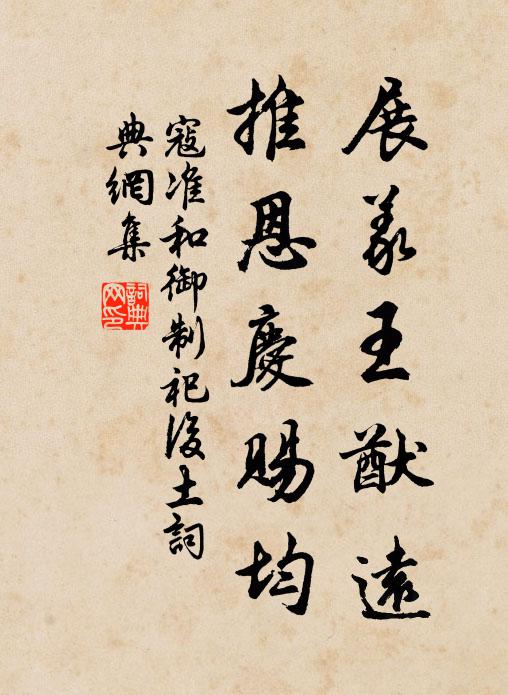 展義王猷遠
推恩慶賜均
寇准和御制祀後土詞
典網集
詞典網印